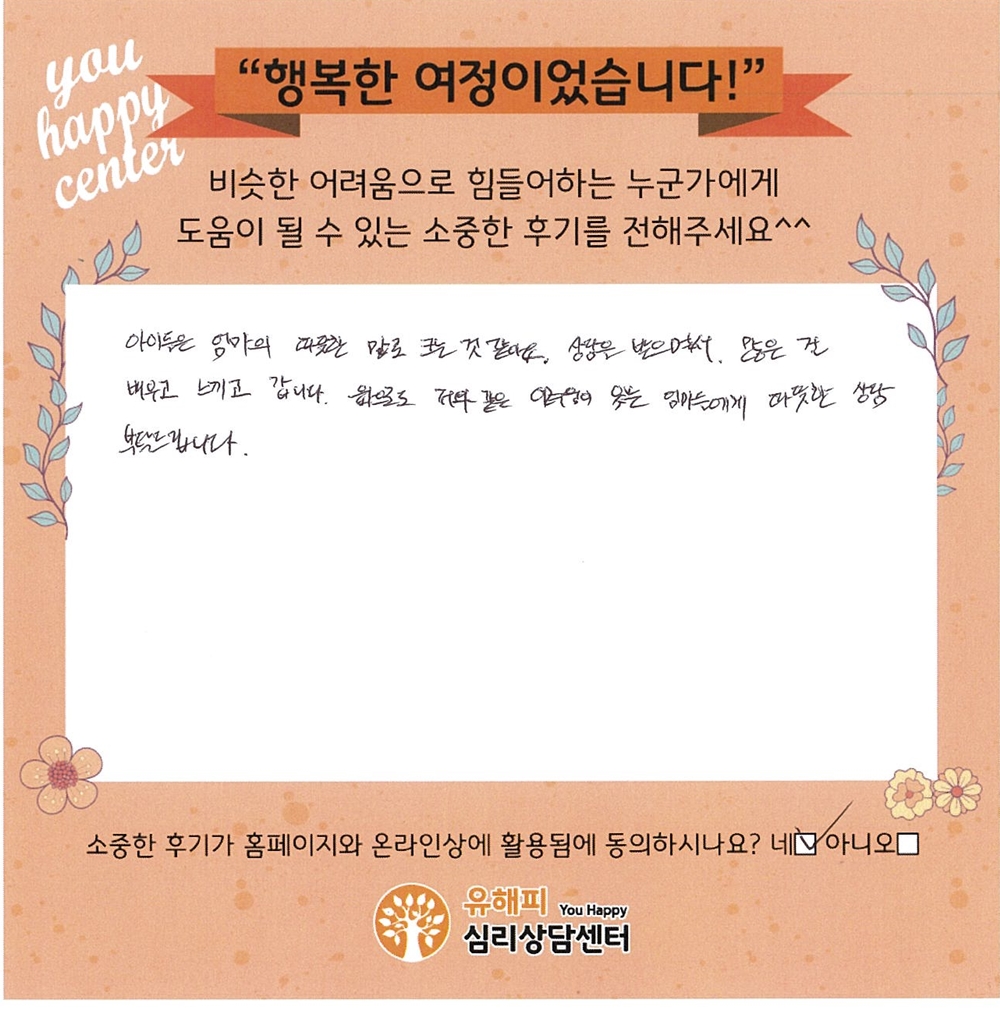 you
happy
center
“행복한 여정이었습니다!”
비슷한 어려움으로 힘들어하는 누군가에게
도움이 될 수 있는 소중한 후기를 전해주세요^^
아이들은 엄마의 따뜻한 말로 크는 것 같아요. 상담을 받으면서, 많은 걸
배우고 느끼고 갑니다. 앞으로도 저와 같은 어려움의 엄마들에게 따뜻한 상담
부탁드립니다.
소중한 후기가 홈페이지와 온라인상에 활용됨에 동의하시나요? 네☑ 아니오☐
유해피 You Happy
심리상담센터